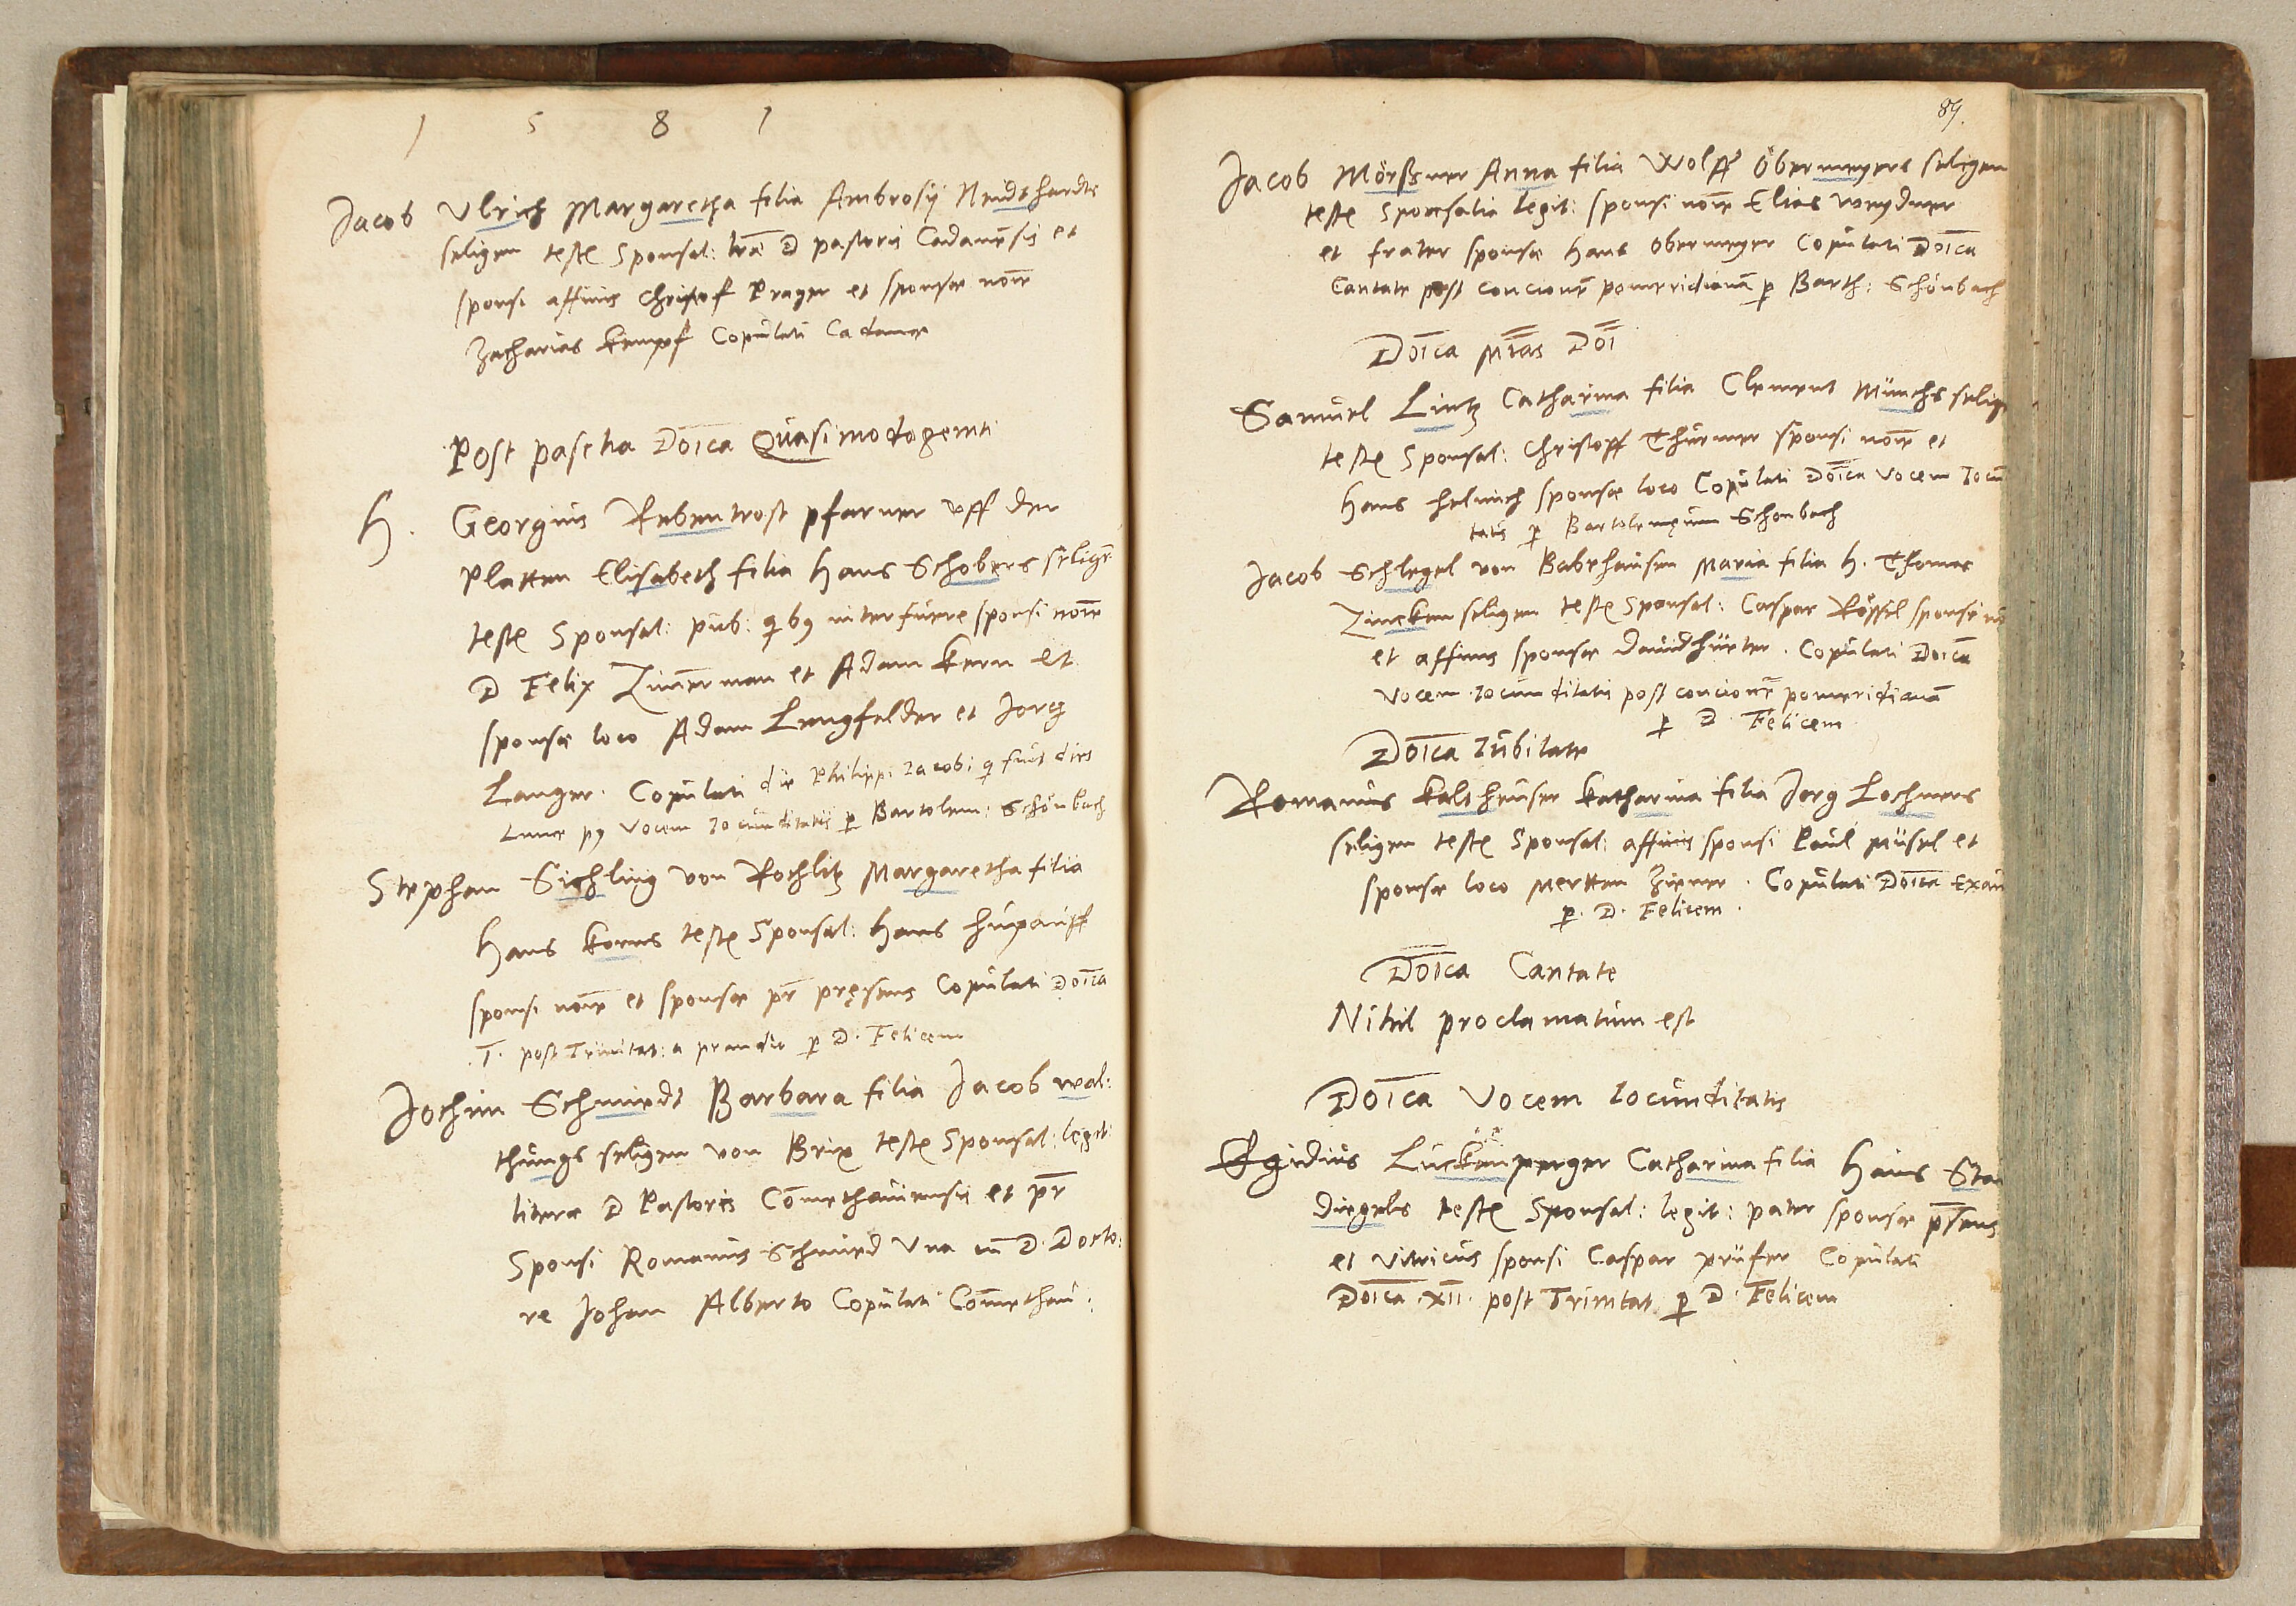 1 5 8 1
Jacob Ulrich Margaretha filia Ambrosij Neidthardts
seligen testes Sponsal: lr̄æ D pastoris Cadanensis et
sponsi affinis Christof Prager et sponsæ noīe
Zacharias Kempf Copulati Cadanæ
Post pascha Doīca Quasimodogeniti
H. Georgius Rebentrost pfarner uff der
Platten Elisabeth filia Hans Schobers seligē
testes Sponsal: pub: qibꝯ interfuere sponsi noīe
D Felix Zim̄erman et Adam Kern et
sponsæ loco Adam Lengfelder et Jorg
Langer. Copulati die Philippi Jacobi q fuit dies
Lunæ pꝯ Vocem Jocunditatis ꝑ Bartolem: Schönbach
Stephan Sichling von Rochlitz Margaretha filia
Hans Korns testes Sponsal: Hans Hupauff
sponsi noīe et sponsæ pr̄ pręsens Copulati Doīca
1. post Trinitat: a prandio ꝑ D. Felicem
Jochim Schmiedt Barbara filia Jacob Wal:
thungs seligen von Brix testes Sponsal: legit:
literæ D Pastoris Com̄ethauiensis et pr̄
Sponsi Romanus Schmied Una cū D. Docto:
re Johan Alberto Copulati Com̄ethau:
89.
Jacob Mörßner Anna filia Wolff Obermeyers seligen
testes Sponsalia legit: sponsi noīe Elias Weydner
et frater sponsæ Hans Obermeyer Copulati Doīca
Cantate post concionē pomeridianā ꝑ Barth: Schönbach
Doīca Mīas Doī
Samuel Lintz Catharina filia Clement Münchs selig
testes Sponsal: Christoff Thürmer sponsi noīe et
Hans Helmich sponsæ loco Copulati Doīca Vocem Jocū
tatis ꝑ Bartolemęum Schonbach
Jacob Schlegel von Babrhausen Maria filia H. Thomas
Zincken seligen testes Sponsal: Caspar Rössel sponsi no
et affinis sponsæ Dauid Hürter. Copulati Doīca
Vocem Jocunditatis post concionē pomeridianā
ꝑ D. Felicem
Doīca Jubilate
Romanus Kaltheuser Katharina filia Jorg Lochners
seligen testes Sponsal: affinis sponsi Paul Müsel et
sponsæ loco Mertten Ziener. Copulati Doīca Exau
ꝑ. D. Felicem.
Doīca Cantate
Nihil proclamatum est
Doīca Vocem Jocunditatis
Egidius Luckenperger Catharina filia Hans Sta
diegels testes Sponsal: legit: pater sponsæ pr̄sens
et Vitricus sponsi Caspar prüfer Copulati
Doīca XII. post Trinitat ꝑ D. Felicem